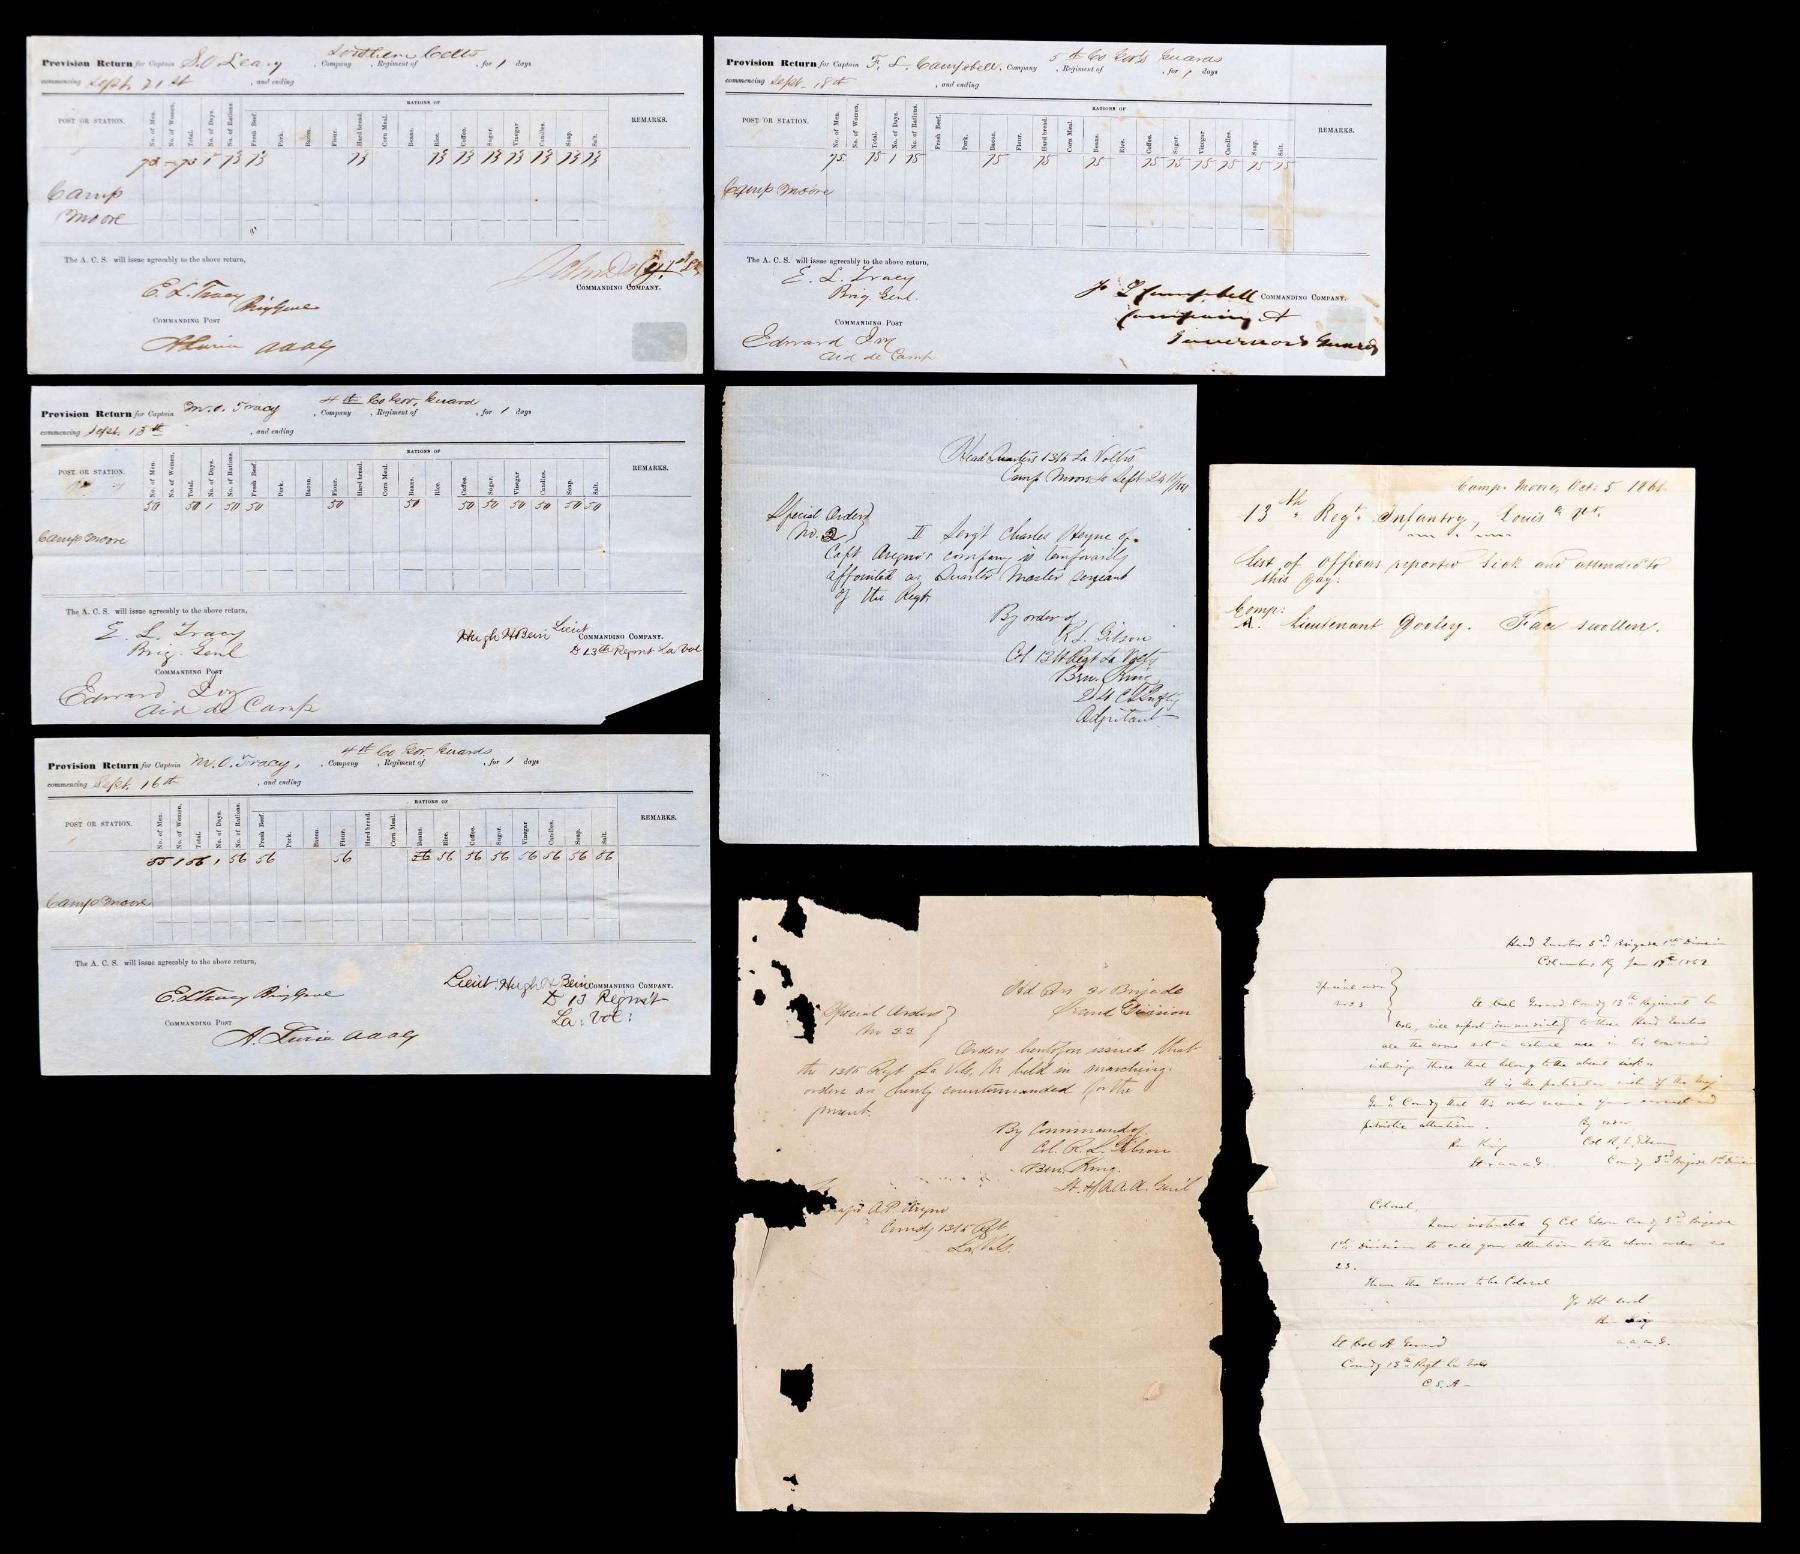 Provision Return for Captain S. O Leary , Company , Regiment of Southern Celts , for 1 days
commencing Sept. 21st , and ending
RATIONS OF
POST OR STATION. No. of Men. No. of Women. Total. No. of Days. No. of Rations. Fresh Beef. Pork. Bacon. Flour. Hard bread. Corn Meal. Beans. Rice. Coffee. Sugar. Vinegar Candles. Soap. Salt. REMARKS.
73 – 73 1 73 73 73 73 73 73 73 73 73 73
Camp
Moore
The A. C. S. will issue agreeably to the above return,
COMMANDING COMPANY.
E. L. Tracy
Brig Genl
COMMANDING POST
A Luria AAAG
Provision Return for Captain F. L. Campbell. Company , Regiment of 5th Co Gov's Guards , for 1 days
commencing Sept. 18th , and ending
RATIONS OF
POST OR STATION. No. of Men. No. of Women. Total. No. of Days. No. of Rations. Fresh Beef. Pork. Bacon. Flour. Hard bread. Corn Meal. Beans. Rice. Coffee. Sugar. Vinegar Candles. Soap. Salt. REMARKS.
75 75 1 75 75 75 75 75 75 75 75 75 75
Camp Moore
The A. C. S. will issue agreeably to the above return,
E. L. Tracy
Brig Genl.
F L Campbell COMMANDING COMPANY.
Company A
Governors Guards
COMMANDING POST
Edward Ivy
Aid de Camp
Provision Return for Captain M. O. Tracy , Company , Regiment of 4th Co Gov. Guard , for 1 days
commencing Sept. 13th , and ending
RATIONS OF
POST OR STATION. No. of Men. No. of Women. Total. No. of Days. No. of Rations. Fresh Beef. Pork. Bacon. Flour. Hard bread. Corn Meal. Beans. Rice. Coffee. Sugar. Vinegar Candles. Soap. Salt. REMARKS.
50 50 1 50 50 50 50 50 50 50 50 50 50
Camp Moore
The A. C. S. will issue agreeably to the above return,
E. L. Tracy
Brig. Genl
Hugh H Bein Lieut COMMANDING COMPANY.
D 13th Regmt La Vol
COMMANDING POST
Edward Ivy
Aid de Camp
Provision Return for Captain M. O. Tracy, , Company , Regiment of 4th Co Gov. Guards , for 1 days
commencing Sept. 16th , and ending
RATIONS OF
POST OR STATION. No. of Men. No. of Women. Total. No. of Days. No. of Rations. Fresh Beef. Pork. Bacon. Flour. Hard bread. Corn Meal. Beans. Rice. Coffee. Sugar. Vinegar Candles. Soap. Salt. REMARKS.
55 1 56 1 56 56 56 56 56 56 56 56 56 56 56
Camp Moore
The A. C. S. will issue agreeably to the above return,
Lieut. Hugh H Bein COMMANDING COMPANY.
D 13 Regmt
La: Vol:
E. L Tracy Brig Genl
COMMANDING POST
A. Luria AAAG
Head Quarters 13th La Volt's
Camp Moore La Sept 24th/1861
Special Orders
No. 2 } II Sergt Charles Heyne of
Capt Avegno's company is temporarily
appointed as Quarter Master sergeant
of the Regt.
By order of
R L Gibson
Col 13th Regt La Volts
Ben. King
Adjutant
Camp. Moore, Oct: 5 1861.
13th Regt. Infantry, Louisa Vt.
List of Officers reported sick and attended to
this day:
Comp:
A. Lieutenant Gooley. Face swollen.
Hd Qrs 2 Brigade
Grand Division
Special Orders
No 22 }
Orders heretofore issued that
the 13th Regt La Vols, be held in marching
orders are hereby countermanded for the
present.
By Command of
Col. R. L. Gibson
Ben. King.
A.A.A. Genl
Major A.P. Avegno
Comdg 13th Regt
La Vols.
Head Quarters 3rd Brigade 1st Division
Columbus Ky Jan 1862
Special order
No 23 }
Lt Col Gerard Comdg 13th Regiment La
Vols, will report immediately to these Head Quarters
all the arms not in actual use in his command
including those that belong to the absent sick.
It is the particular wish of the Maj
Genl Comdg that this order receive your earnest and
patriotic attention. By order
Ben King Col R. L. Gibson
Comdg 3rd Brigade 1st Division
Colonel,
I am instructed by Col Gibson Comdg 3rd Brigade
1st Division to call your attention to the above order no
23.
I have the honor to be Colonel
Yr obt servt
Ben King
a.a.a.G.
Lt Col A Gerard
Comdg 13th Regt La Vols
C.S.A